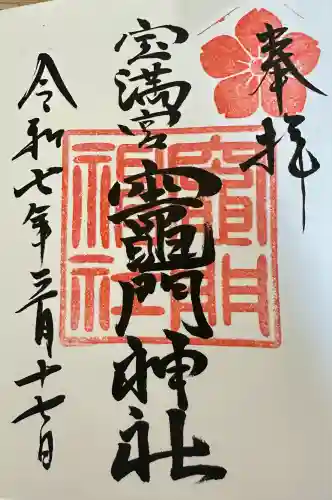 奉拝
宝満宮 竈門神社
竈門
神社
令和七年三月十七日